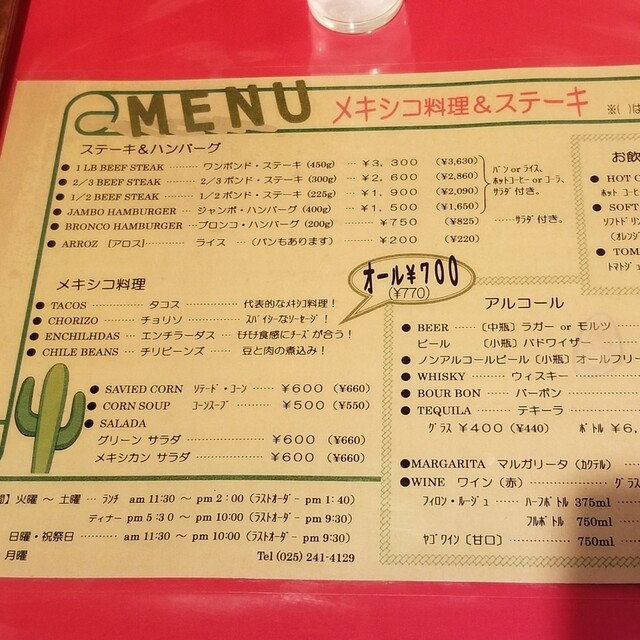 MENU メキシコ料理&ステーキ ※( )は
ステーキ&ハンバーグ
● 1 LB BEEF STEAK ……… ワンポンド・ステーキ (450g) … ¥3,300 (¥3,630)
● 2/3 BEEF STEAK ……… 2/3ポンド・ステーキ (300g) … ¥2,600 (¥2,860)
● 1/2 BEEF STEAK ……… 1/2ポンド・ステーキ (225g) … ¥1,900 (¥2,090)
● JAMBO HAMBURGER … ジャンボ・ハンバーグ (400g) … ¥1,500 (¥1,650)
パン or ライス、
ホットコーヒー or コーラ、
サラダ 付き。
● BRONCO HAMBURGER …ブロンコ・ハンバーグ (200g) …… ¥750 (¥825) ……サラダ付き。
● ARROZ [アロス] ………… ライス … (パンもあります) ………… ¥200 (¥220)
メキシコ料理
オール¥700
(¥770)
● TACOS ………… タコス ………… 代表的なメキシコ料理!
● CHORIZO …… チョリソ ………… スパイシーなソーセージ!
● ENCHILHDAS … エンチラーダス … モチモチ食感にチーズが合う!
● CHILE BEANS … チリビーンズ …… 豆と肉の煮込み!
● SAVIED CORN ソテード・コーン …… ¥600 (¥660)
● CORN SOUP コーンスープ ………… ¥500 (¥550)
● SALADA
グリーン サラダ ………………… ¥600 (¥660)
メキシカン サラダ ……………… ¥600 (¥660)
火曜 ～ 土曜 … ランチ am 11:30 ～ pm 2:00 (ラストオーダー pm 1:40)
ディナー pm 5:30 ～ pm 10:00 (ラストオーダー pm 9:30)
日曜・祝祭日 ……… am 11:30 ～ pm 10:00 (ラストオーダー pm 9:30)
月曜 Tel (025) 241-4129
お飲
● HOT C
ホット コーヒ
● SOFT
ソフトドリン
(オレンジ
● TOM
トマトジュ
アルコール
● BEER …… [中瓶] ラガー or モルツ
ビール [小瓶] バドワイザー
● ノンアルコールビール [小瓶] オールフリー
● WHISKY ……… ウィスキー
● BOUR BON …… バーボン
● TEQUILA ……… テキーラ
グラス ¥400 (¥440) ボトル ¥6,
●MARGARITA マルガリータ (カクテル)
●WINE ワイン (赤) ……………… グラス
フィロン・ルージュ …… ハーフボトル 375ml
フルボトル 750ml
ヤゴワイン [甘口] ………… 750ml